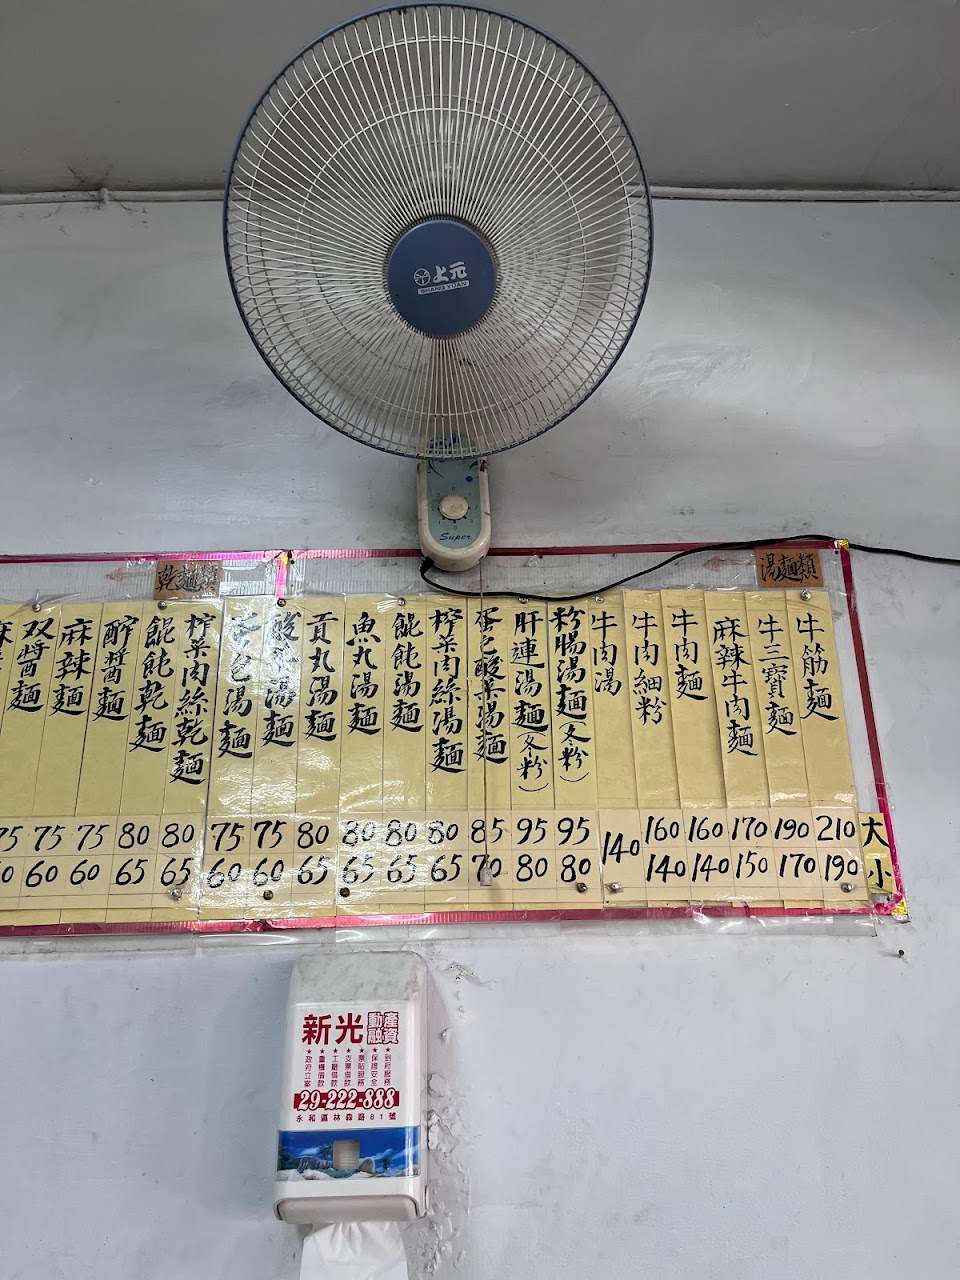 上元
SHANG YUAN
Super
湯麵類
乾麵類
大
小
牛筋麵 210 190
牛三寶麵 190 170
麻辣牛肉麵 170 150
牛肉麵 160 140
牛肉細粉 160 140
牛肉湯 140
粉腸湯麵(冬粉) 95 80
肝連湯麵(冬粉) 95 80
蛋包酸菜湯麵 85 70
榨菜肉絲湯麵 80 65
餛飩湯麵 80 65
魚丸湯麵 80 65
貢丸湯麵 80 65
酸菜湯麵 75 60
蛋包湯麵 75 60
榨菜肉絲乾麵 80 65
餛飩乾麵 80 65
酢醬麵 75 60
麻辣麵 75 60
双醬麵 75
新光動產融資
到府服務
保證安全
票貼服務
支票借款
工廠借款
重機借款
政府立案
29-222-888
永和區林森路81號